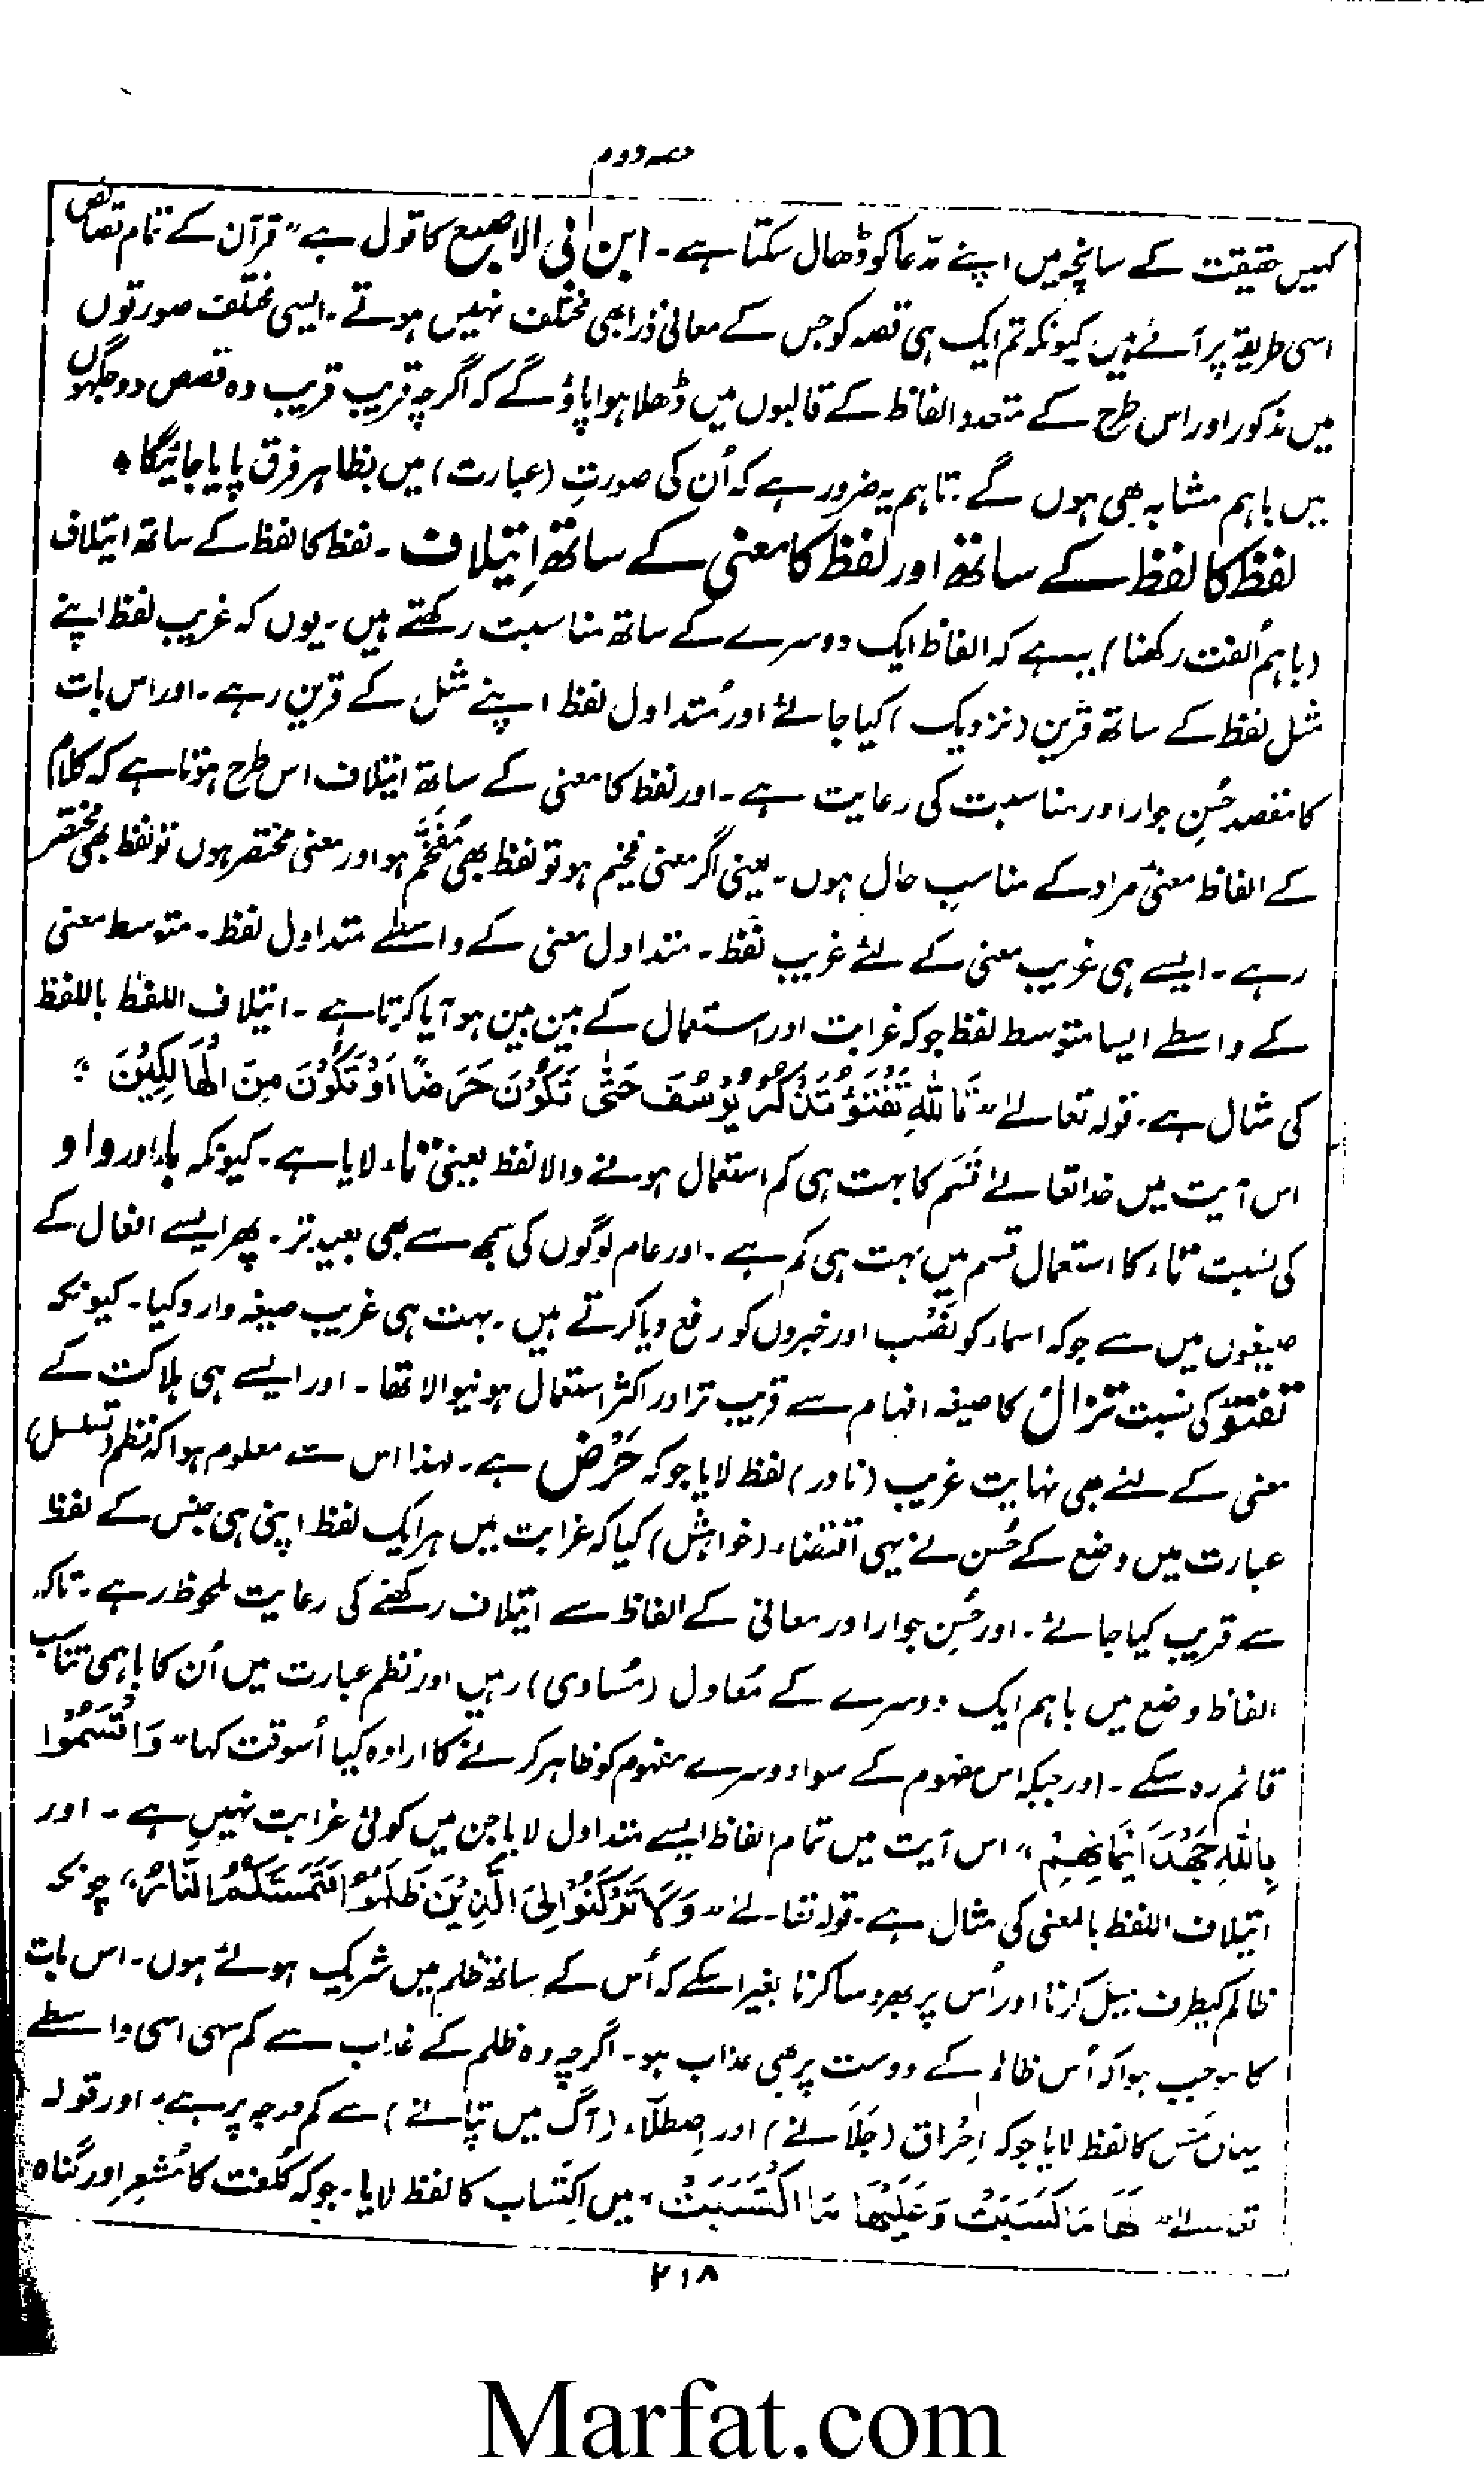 حصہ دوم
کہیں حقیقت کے سانچہ میں اپنے مدّعا کو ڈھال سکتا ہے۔ ابن ابی الاصبع کا قول ہے "قرآن کے تمام قصائص
اسی طریقہ پر آئے ہیں کیونکہ تم ایک ہی قصہ کو جس کے معانی ذرا بھی مختلف نہیں ہوتے۔ ایسی مختلف صورتوں
میں مذکور اور اس طرح کے متعدد الفاظ کے قالبوں میں ڈھلا ہوا پاؤ گے کہ اگرچہ قریب قریب وہ قصص دو جگہوں
میں باہم مشابہ بھی ہوں گے۔ تاہم یہ ضرور ہے کہ اُن کی صورتِ (عبارت) میں بظاہر فرق پایا جائیگا *
لفظ کا لفظ کے ساتھ اور لفظ کا معنی کے ساتھ اِیتلاف۔ لفظ کا لفظ کے ساتھ ایتلاف
(باہم اُلفت رکھنا) یہ ہے کہ الفاظ ایک دوسرے کے ساتھ مناسبت رکھتے ہیں۔ یوں کہ غریب لفظ اپنے
مثل لفظ کے ساتھ قرین (نزدیک) کیا جائے اور مُتداول لفظ اپنے مثل کے قرین رہے۔ اور اس بات
کا مقصد حُسنِ جوار اور مناسبت کی رعایت ہے۔ اور لفظ کا معنی کے ساتھ ایتلاف اس طرح ہوتا ہے کہ کلام
کے الفاظ معنیٔ مراد کے مناسبِ حال ہوں۔ یعنی اگر معنی فخیم ہو تو لفظ بھی مُفَخَّم ہو اور معنی مختصر ہوں تو لفظ بھی مختصر
رہے۔ ایسے ہی غریب معنی کے لئے غریب لفظ۔ متداول معنی کے واسطے متداول لفظ۔ متوسط معنی
کے واسطے ایسا متوسط لفظ جو کہ غرابت اور استعمال کے بین بین ہو آیا کرتا ہے۔ ایتلاف اللفظ باللفظ
کی مثال ہے۔ قولہ تعالےٰ "تَاللّٰهِ تَفْتَؤُ تَذْكُرُ يُوْسُفَ حَتّٰى تَكُوْنَ حَرَضًا اَوْ تَكُوْنَ مِنَ الْهَالِكِيْنَ"
اس آیت میں خدا تعالےٰ قَسَم کا بہت ہی کم استعمال ہونے والا لفظ یعنی تاء لایا ہے۔ کیونکہ باء اور واو
کی نسبت تاء کا استعمال قسم میں بہت ہی کم ہے۔ اور عام لوگوں کی سمجھ سے بھی بعید تر۔ پھر ایسے افعال کے
صیغوں میں سے جو کہ اسماء کو نَصْب اور خبروں کو رفع دیا کرتے ہیں۔ بہت ہی غریب صیغہ وارد کیا۔ کیونکہ
تفتؤ کی نسبت تزالُ کا صیغہ افہام سے قریب تر اور اکثر استعمال ہونیوالا تھا۔ اور ایسے ہی ہلاکت کے
معنی کے لئے بھی نہایت غریب (نادر) لفظ لایا جو کہ حَرَض ہے۔ لہٰذا اس سے معلوم ہوا کہ نظم (تسلسل)
عبارت میں وضع کے حُسن نے یہی اقتضاء (خواہش) کیا کہ غرابت میں ہر ایک لفظ اپنی ہی جنس کے لفظ
سے قریب کیا جائے۔ اور حُسنِ جوار اور معانی کے الفاظ سے ایتلاف رکھنے کی رعایت ملحوظ رہے۔ تاکہ
الفاظ وضع میں باہم ایک دوسرے کے مُعادل (مُساوی) رہیں اور نظم عبارت میں اُن کا باہمی تناسب
قائم رہ سکے۔ اور جبکہ اس مفہوم کے سوا دوسرے مفہوم کو ظاہر کرنے کا ارادہ کیا اُسوقت کہا "وَاَقْسَمُوْا
بِاللّٰهِ جَهْدَ اَيْمَانِهِمْ" اس آیت میں تمام الفاظ ایسے متداول لایا جن میں کوئی غرابت نہیں ہے۔ اور
ایتلاف اللفظ بالمعنی کی مثال ہے۔ قولہ تعالےٰ "وَلَا تَرْكَنُوْا اِلَى الَّذِيْنَ ظَلَمُوْا فَتَمَسَّكُمُ النَّارُ" چونکہ
ظالم کیطرف میل کرنا اور اُس پر بھروسا کرنا بغیر اسکے کہ اُس کے ساتھ ظلم میں شریک ہوئے ہوں۔ اس بات
کا موجب ہوا کہ اُس ظالم کے دوست پر بھی عذاب ہو۔ اگرچہ وہ ظلم کے عذاب سے کم سہی اسی واسطے
یہاں مَسّ کا لفظ لایا جو کہ اِحْراق (جَلانے) اور اِصطلآء (آگ میں تپانے) سے کم درجہ پر ہے۔ اور قولہ
تعالےٰ "لَهَا مَا كَسَبَتْ وَعَلَيْهَا مَا اكْتَسَبَتْ" میں اِکتِساب کا لفظ لایا۔ جو کہ کُلفت کا مُشعِر اور گناہ
۲۱۸
Marfat.com